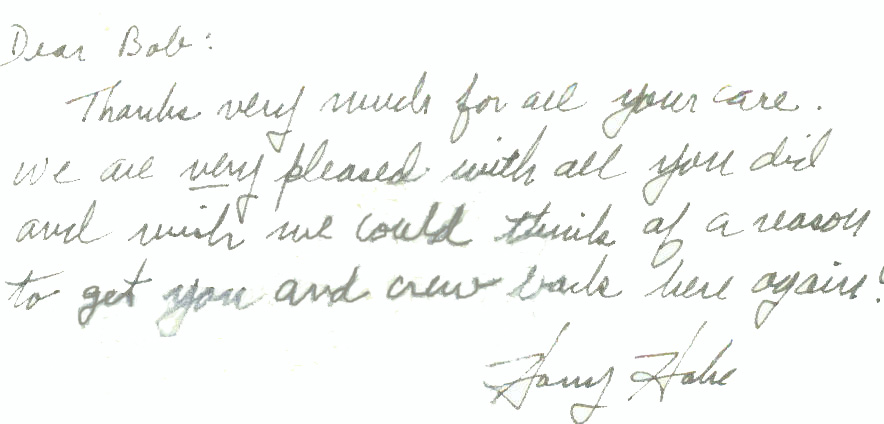 Dear Bob:
Thanks very much for all your care.
We are very pleased with all you did
and wish we could think of a reason
to get you and crew back here again!
Harry